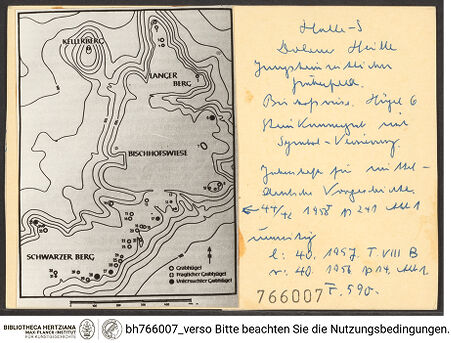 KELLERBERG
LANGER
BERG
BISCHOFSWIESE
SCHWARZER BERG
Grabhügel
Fraglicher Grabhügel
Untersuchter Grabhügel
Halle-S
Dölauer Heide
Jungsteinzeitliches
Gräberfeld.
Bischofswies. Hügel 6
Steinkammergrab mit
Symbol-Verzierung
Jahresschrift für mittel-
deutsche Vorgeschichte
41/42 1958 p 241 Abb 1
l: 40. 1957. T. VIII B
r: 40. 1956 p 14, Abb 1.
766007 F. 590.-
BIBLIOTHECA HERTZIANA
MAX-PLANCK-INSTITUT
FÜR KUNSTGESCHICHTE
bh766007_verso Bitte beachten Sie die Nutzungsbedingungen.